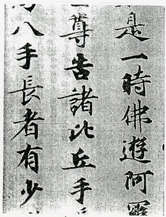 是一時佛遊阿
尊告諸比丘手
八手長者有少